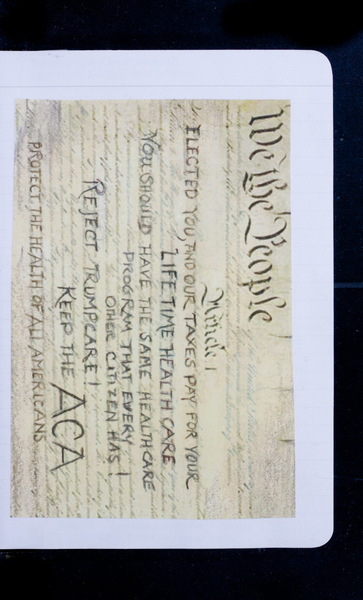 We the People
Article I
ELECTED YOU, AND OUR TAXES PAY FOR YOUR
LIFETIME HEALTH CARE.
YOU SHOULD HAVE THE SAME HEALTHCARE
PROGRAM THAT EVERY
OTHER CITIZEN HAS!
REJECT TRUMPCARE!
KEEP THE ACA
PROTECT THE HEALTH OF ALL AMERICANS